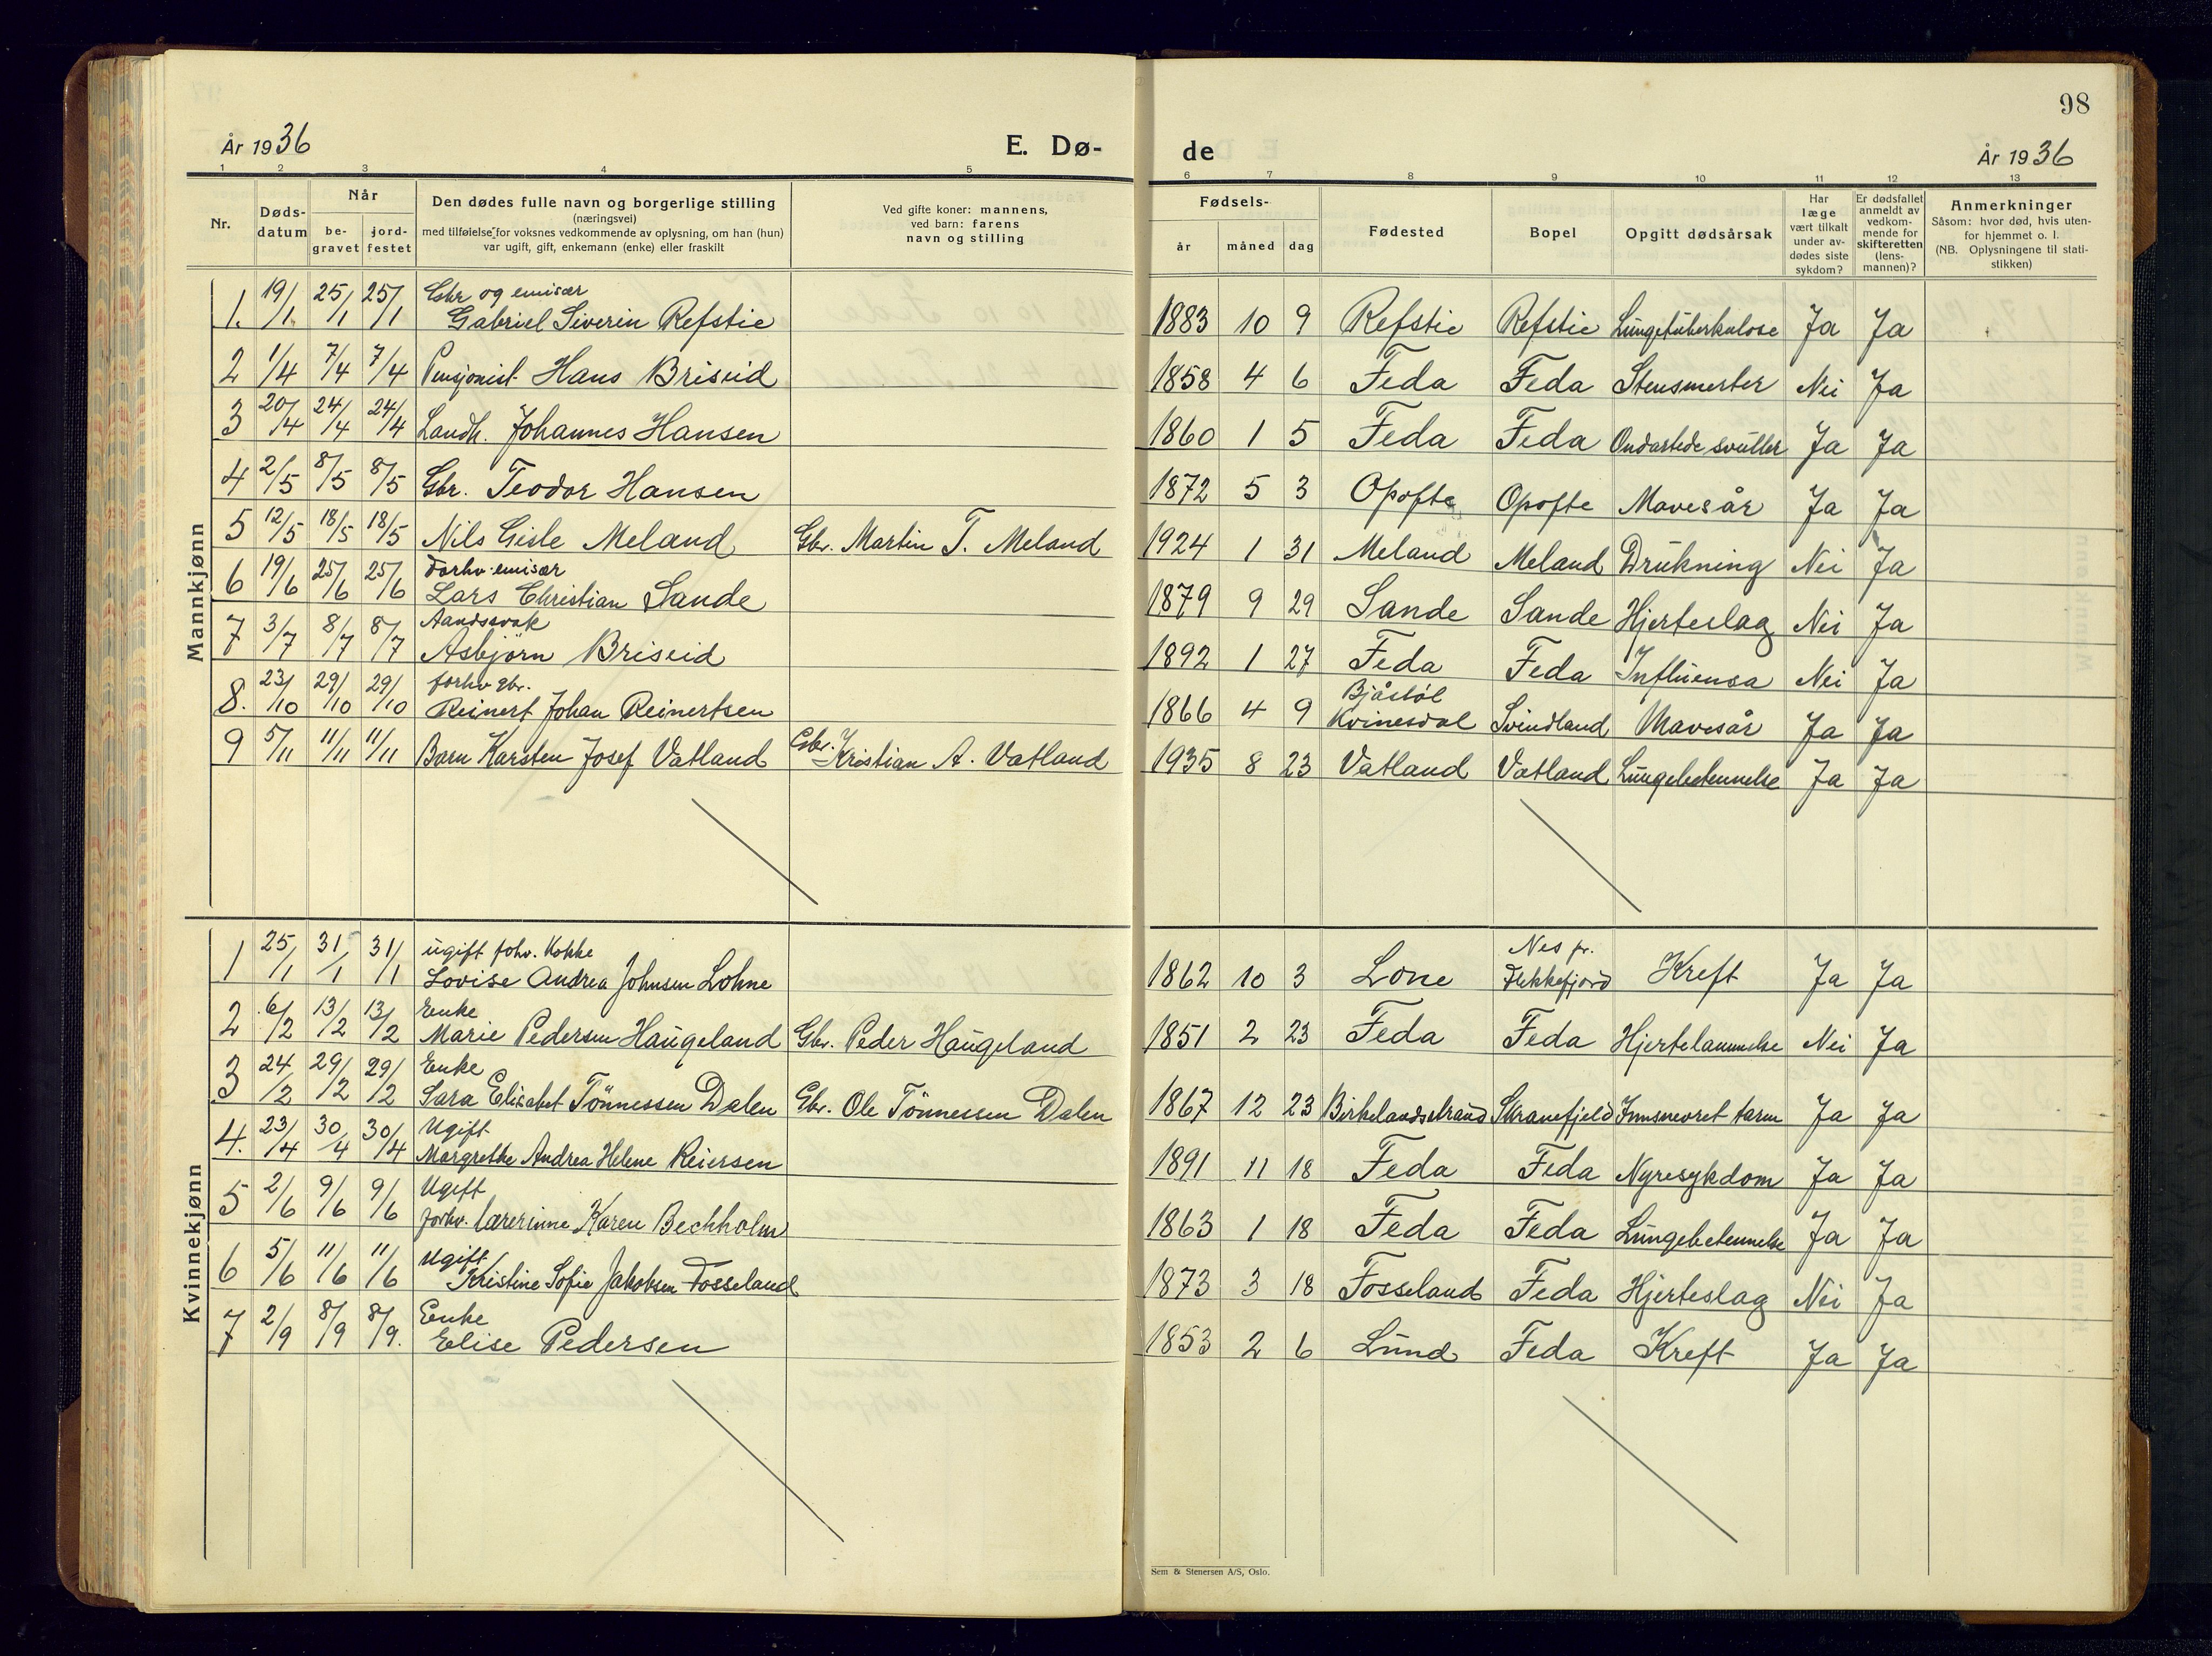 98
År 1936
E. Dø-
de
År 1936
1 2 3 4 5 6 7 8 9 10 11 12 13
Nr.
Dødsdatum
Når
begravet
jordfestet
Den dødes fulle navn og borgerlige stilling
(næringsvei)
med tilføielse for voksnes vedkommende av oplysning, om han (hun)
var ugift, gift, enkemann (enke) eller fraskilt
Ved gifte koner: mannens,
ved barn: farens
navn og stilling
Fødsels-
år måned dag
Fødested
Bopel
Opgitt dødsårsak
Har læge vært tilkalt under avdødes siste sykdom?
Er dødsfallet anmeldt av vedkommende for skifteretten (lensmannen)?
Anmerkninger
Såsom: hvor død, hvis utenfor hjemmet o. l.
(NB. Oplysningene til statistikken)
Mannkjønn
1. 19/1 25/1 25/1 Gbr og emisær Gabriel Siverin Refstie 1883 10 9 Refstie Refstie Lungetuberkulose Ja Ja
2 1/4 7/4 7/4 Pensjonist Hans Briseid 1858 4 6 Feda Feda Stensmerter Nei Ja
3 20/4 24/4 24/4 Landh. Johannes Hansen 1860 1 5 Feda Feda Ondartede svulter Ja Ja
4 2/5 8/5 8/5 Gbr. Teodor Hansen 1872 5 3 Opofte Opofte Mavesår Ja Ja
5 12/5 18/5 18/5 Nils Gisle Meland Gbr. Martin T. Meland 1924 1 31 Meland Meland Drukning Nei Ja
6 19/6 25/6 25/6 Forhv. emisær Lars Christian Sande 1879 9 29 Sande Sande Hjerteslag Nei Ja
7 3/7 8/7 8/7 Aandssvak Asbjörn Briseid 1892 1 27 Feda Feda Influensa Nei Ja
8. 23/10 29/10 29/10 forhv gbr. Reinert Johan Reinertsen 1866 4 9 Bjåstöl Kvinesdal Svindland Mavesår Ja Ja
9 5/11 11/11 11/11 Barn Karsten Josef Vatland Gbr. Kristian A. Vatland 1935 8 23 Vatland Vatland Lungebetennelse Ja Ja
Kvinnekjønn
1 25/1 31/1 31/1 ugift fohv. Kokke Lovise Andrea Johnsen Lohne 1862 10 3 Lone Nes pr. Flekkefjord Kreft Ja Ja
2 6/2 13/2 13/2 Enke Marie Pedersen Haugeland Gbr. Peder Haugeland 1851 2 23 Feda Feda Hjertelammelse Nei Ja
3 24/2 29/2 29/2 Enke Sara Elisabet Tönnessen Dalen Gbr. Ole Tönnessen Dalen 1867 12 23 Birkelandsstrand Stranefjeld Innsnevret tarm Ja Ja
4. 23/4 30/4 30/4 Ugift Margrethe Andrea Helene Reiersen 1891 11 18 Feda Feda Nyresykdom Ja Ja
5 2/6 9/6 9/6 Ugift forhv. lærerinne Karen Bechholm 1863 1 18 Feda Feda Lungebetennelse Ja Ja
6 5/6 11/6 11/6 Ugift Kristine Sofie Jakobsen Fosseland 1873 3 18 Fosseland Feda Hjerteslag Nei Ja
7 2/9 8/9 8/9. Enke Elise Pedersen 1853 2 6 Lund Feda Kreft Ja Ja
Sem & Stenersen A/S, Oslo.